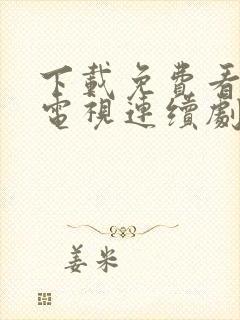 下載免費看
電視連續劇
姜米